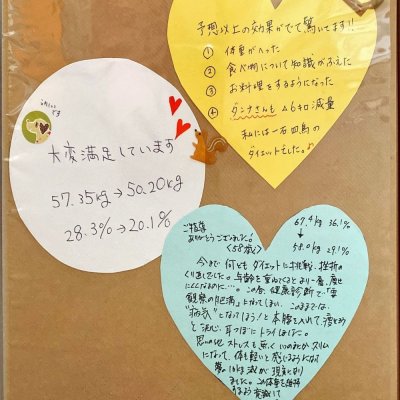 予想以上の効果がでて驚いてます!!
① 体重がへった
② 食べ物について知識がふえた
③ お料理をするようになった
④ ダンナさんも △6キロ減量
私には一石四鳥の
ダイエットでした。♪
大変満足しています
57.35kg→50.20kg
28.3%→20.1%
ご指導
ありがとうございました!
(58歳)
67.4kg 36.1%
↓
58.0kg 29.1%
今まで何度もダイエットに挑戦、挫折の
くり返しでした。与齢を重ねてくるとより一層、痩せ
にくくなるのに…。この春、健康診断で「要
観察の肥満」と
"病気"となってしまう!と本腰を入れて
と決心、耳つぼにトライしました。
思いの他 ストレスも無く いつのまにかスリム
になって、体も軽いと感じるようになり
夢の10kg減が現実となり
ました。この体重を維持
するよう意識して